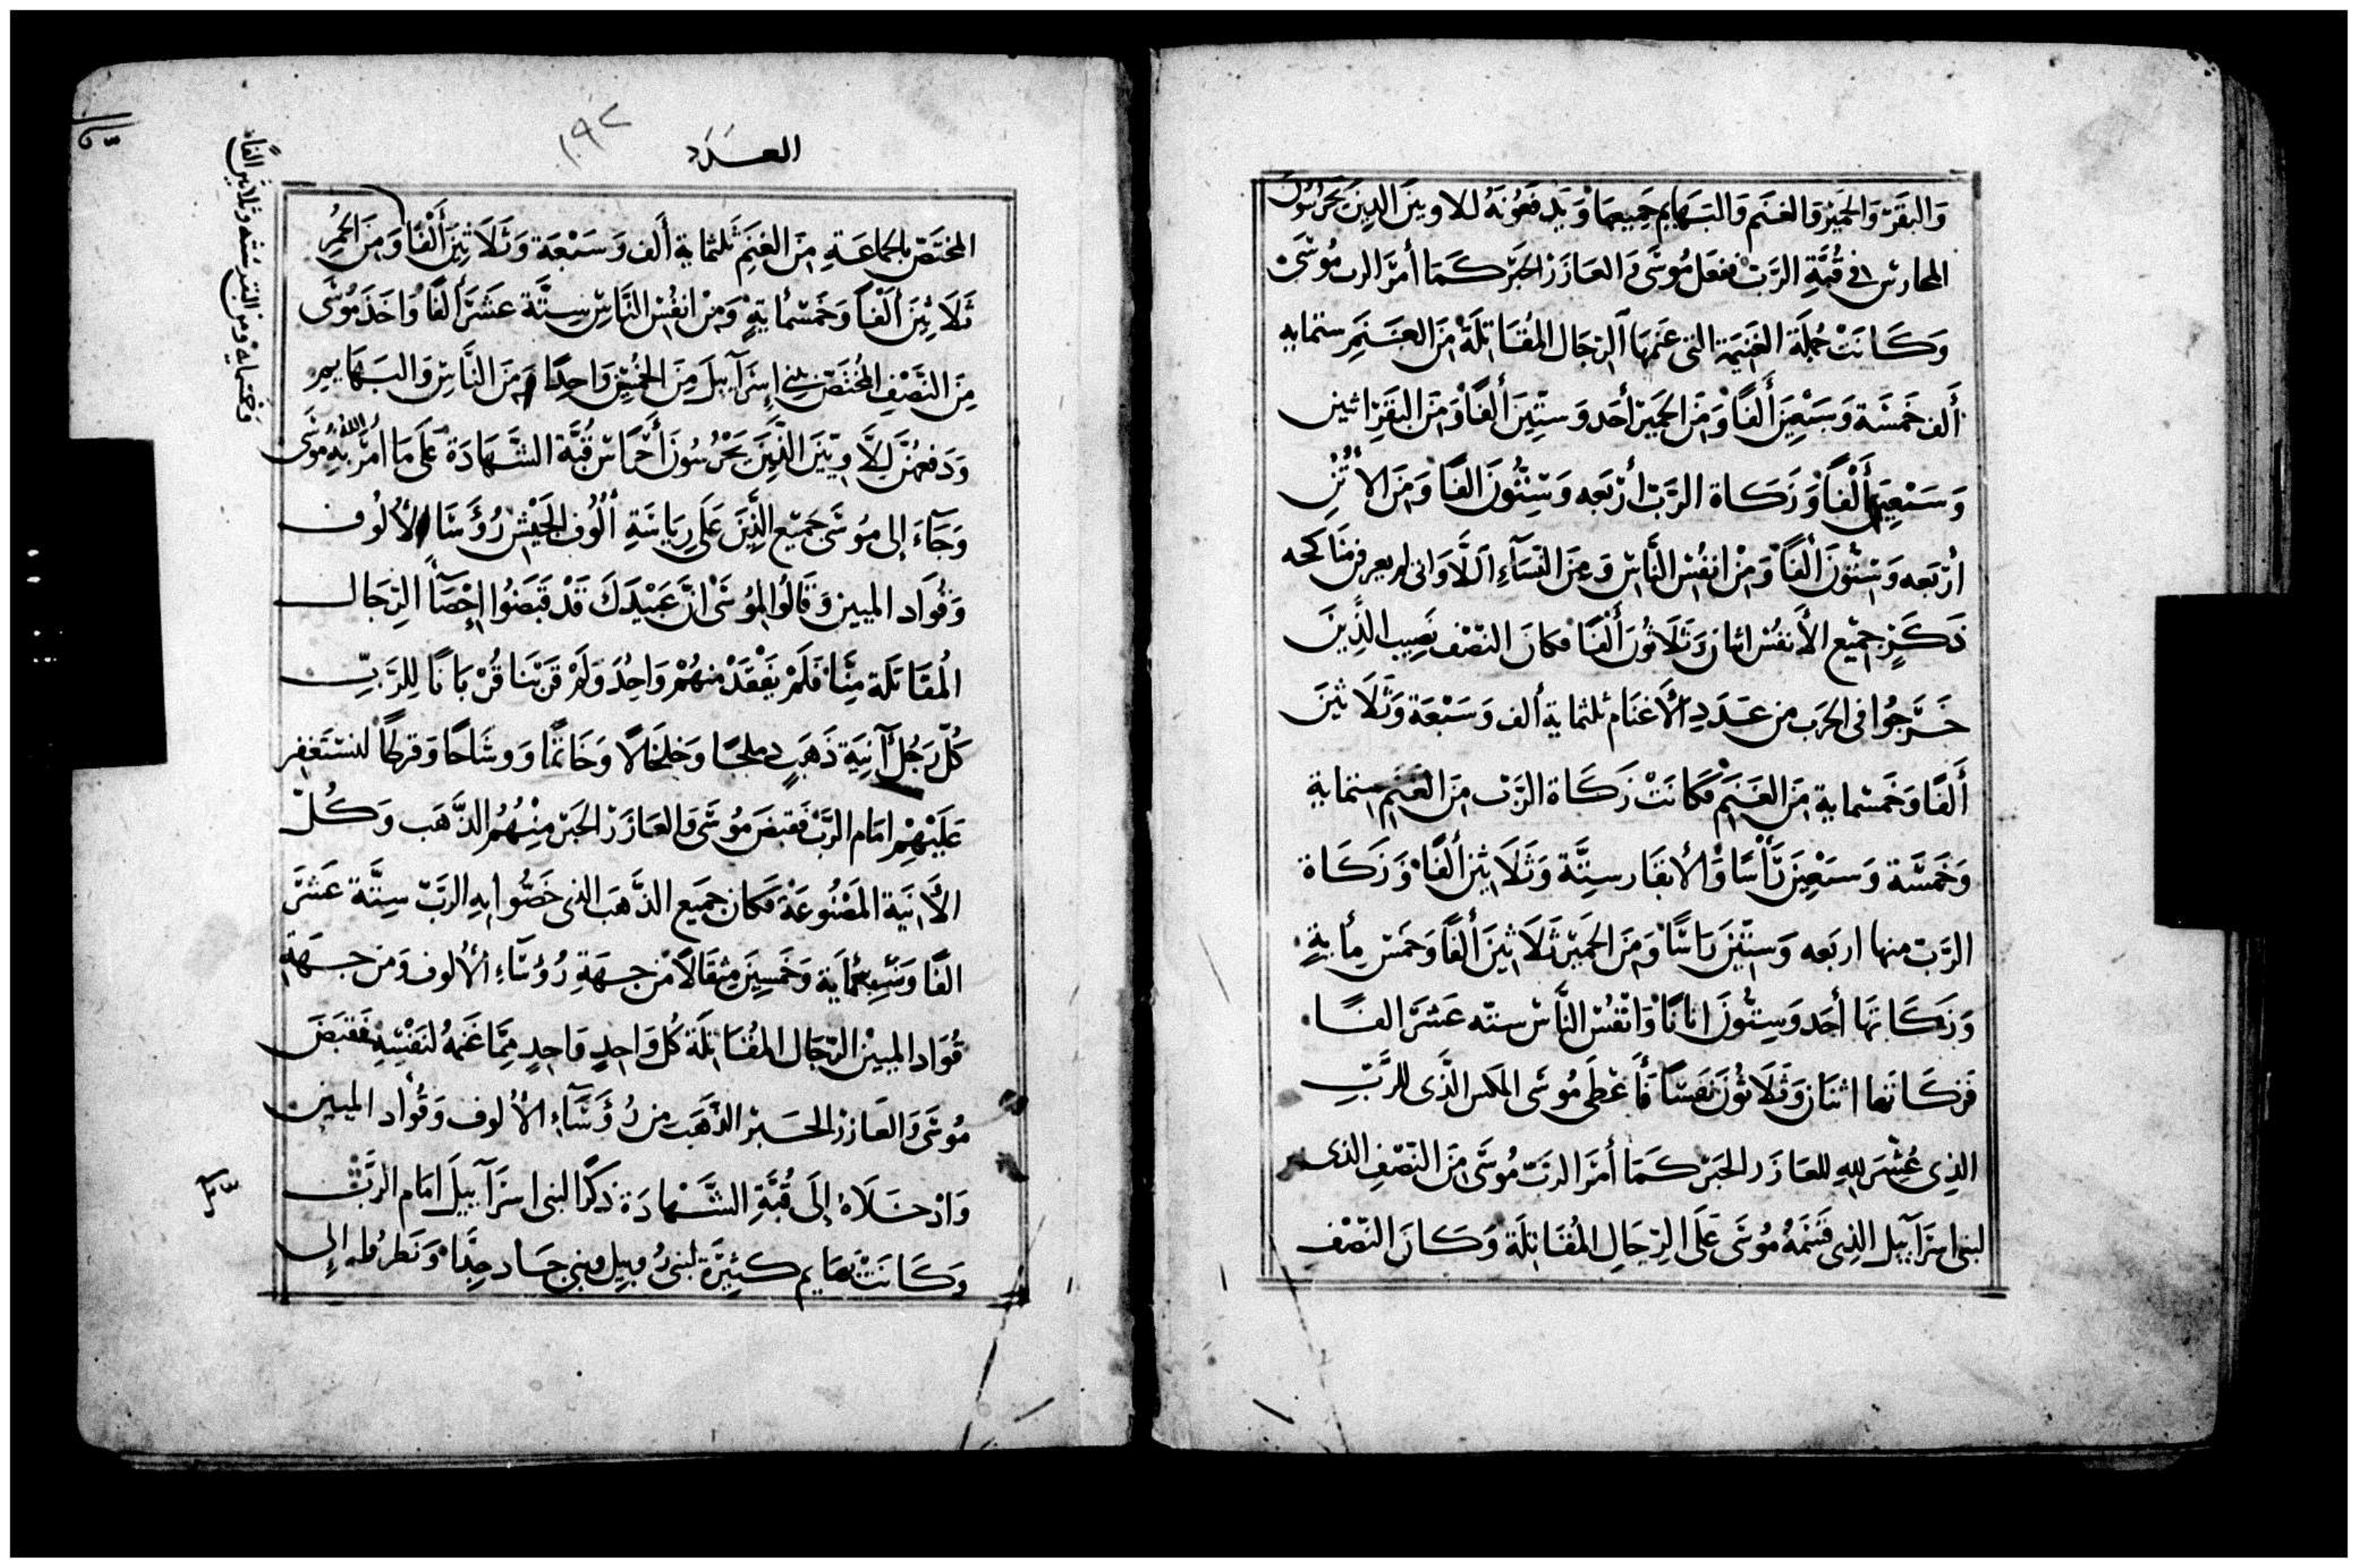 وَالبَقَرْ وَالحَمِيْرْ وَالغَنَم وَالبَهَايِم جَمِيعهَا وَيَدفَعُونَهُ للاويين الدِينَ يَحرُسُونَ
المحارس في قُبَّةِ الرَبّ ففعَل مُوسَى وَالعَازَرْ الحَبْر كَمَا أمَرَ الرب مُوسَى
وَكَانَتْ جُملَة الغَنِيمَة التى غنمهَا الرِجَال المُقَاتِلَة مِنَ الغَنَمِ ستمايه
أَلف خَمسَة وَسَبْعِينَ أَلفًا وَمِنَ الحَمِيرْ أحَد وَسِتِّينَ أَلفًا وَمِنَ البَقَرِ اثنين
وَسَبْعِينَ أَلْفًا وَزَكَاة الرَبّ أرْبَعه وَسِتُّونَ الفًا وَمِنَ الأُتُنِ
ارْبَعه وَسِتُّونَ أَلفًا وَمِنْ انفُسْ النَّاسْ وَمِنَ النِسَآءِ اللَّوَاتى لم يعرفن مَناكحه
ذَكَرٍ جمِيْع الأَنفُسْ اثنان وَثَلَاثُونَ أَلْفًا فكانَ النّصْف نَصِيب الذِينَ
خَرَجُوا فى الحَرب من عَدَدِ الأَغنَام ثلثماية ألف وَسَبْعَة وَثَلَاثينَ
أَلفًا وَخَمسْماية مِنَ الغَنَم فَكَانَتْ زَكَاة الرَبّ مِنَ الغَنَم ستماية
وَخَمسَة وَسَبْعِينَ رَأسًا وَالأبقَار سِتَّة وَثَلَاثِينَ ألفًا وَزَكَاة
الرَبّ منها اربَعه وَسِتِّينَ رَاسًا وَمِنَ الحَمِيْر ثَلَاثِينَ أَلفًا وَخَمسْ مِأيةٍ
وَزَكَاتهَا أحَد وَسِتُّونَ اتانًا وَانْفُسْ النَّاسْ ستّه عَشَرَ الفًا
فَزكَاتها اثنَان وَثَلَاثُونَ نَفسًا فَأَعْطَى مُوسَى المكس الَّذى للرَّبِّ
الذِى عُشِرَ للهِ للعَازَر الحَبْر كَمَا أمَرَ الرَبّ مُوسَى مِنَ النّصْفِ الذى
لبنى اسرَآييل الذِى قَسَمَهُ مُوسَى عَلَى الرِّجَالِ المُقَاتِلَة وَكَانَ النّصْف
العَدَد
١٩٢
المختَصّ بالجمَاعَةِ مِنَ الغنَمِ ثلثماية أَلف وَسَبْعَة وَثَلَاثِينَ أَلْفًا وَمِنَ الحُمُرِ
ثَلَاثِينَ أَلْفًا وَخَمْسمَايةٍ وَمِنْ انفُسْ النَّاسْ سِتَّة عَشَرَ أَلفًا وَاخَذَ مُوسَى
مِنَ النّصْفِ المُختَصّ ببَنى إسْرَآييلَ مِنَ الخمْسِينَ وَاحِدًا مِنَ النَّاسْ وَالبَهَايمِ
وَدَفعهُنَّ لِلَّاوِيّينَ الَّذِينَ يَحْرُسُونَ أحْرَاسْ قُبَّة الشَّهَادَة عَلَى مَا أمَرَ اللهُ بهِ مُوسَى
وَجَآءَ إلى مُوسَى جَمِيْع الَّذِينَ عَلَى رِيَاسَةِ أُلُوف الجَيْش رُؤَسَا الأُلُوف
وَقُوَاد الميين وَقَالُوا لمُوسَى انَّ عَبيْدَكَ قَدْ قَبَضُوا إحْصَآ الرِّجَال
المُقَاتلَة مِنَّا فَلَمْ يَفْقَدْ مِنهُمْ وَاحِدَ وَلَهُ قَرّبْنَا قُرْبَانًا لِلرَّبِّ
كُلّ رَجُل آنِيَة ذَهَبٍ دملجًا وَخلخَالًا وَخَاتمًا وَوِشَاحًا وَقرطًا لنسْتَغفِر
عَلَيْهِمْ امَام الرَبّ فَقبَضَ مُوسَى وَالعَازَرْ الحَبْر مِنْهُم الذَّهَب وَكُلّ
الأَانيَة المَصْنُوعَةْ فكَان جمِيع الذَّهَب الذى خَصُّوا بهِ الرَبّ سِتَّة عَشَرَ
الفًا وَسَبعمَاية وَخَمسِينَ مِثقَالًا مِنْ جهَةِ رُؤَسَآءِ الأُلُوف وَمن جهَةِ
قُوَاد الميين الرّجَال المُقَاتِلَة كُلّ وَاحِدٍ وَاحِدٍ مِمَّا غَنمهُ لنَفْسِهِ فَقبَضَ
مُوسَى وَالعَازر الحَبْر الذَّهَبَ من رُؤَسَآءِ الأُلُوف وَقُوَاد الميين
وَادْخَلَاهُ إلَى قُبَّةِ الشَّهَادَة ذكرًا لبنى اسرَآييلَ امَام الرَّبّ
وَكَانَتْ بهَايم كَثِيْرَة لبَنى رُوبِيل وبني جَاد جِدًّا وَنَظرُوا إلى